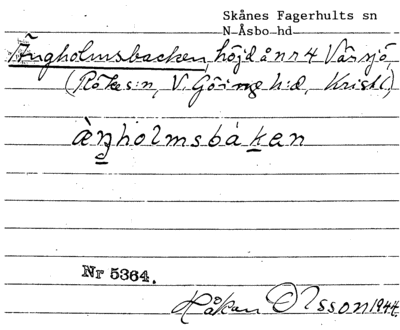 Skånes Fagerhults sn
N Åsbo hd
Ängholmsbacken, höjd å nr 4 Väsjö,
(Röke s:n, V. Göinge h:d, Krist.l.)
àŋholmsbákan
Nr 5364.
Håkan Olsson 1944.